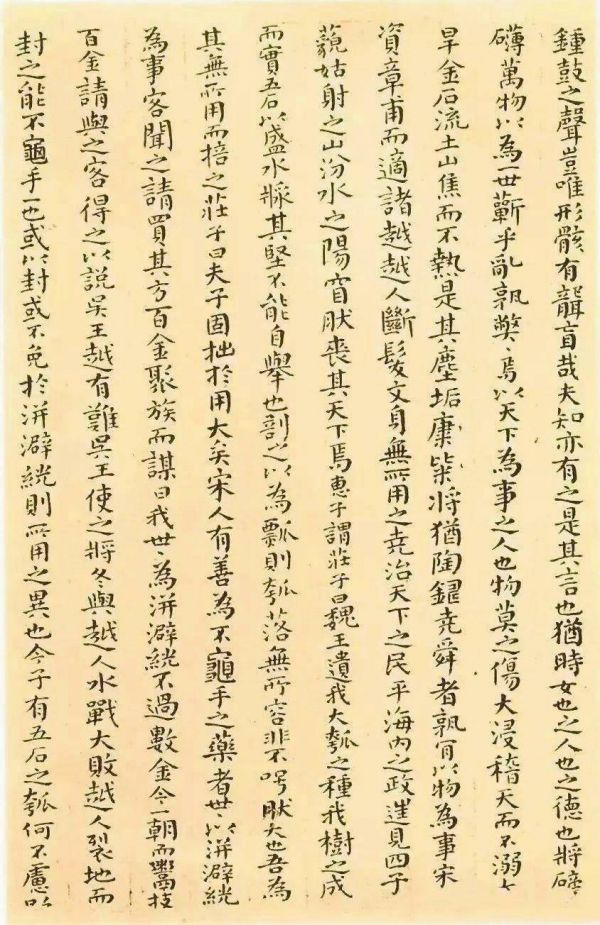 鍾鼓之聲豈唯形骸有聾盲哉夫知亦有之是其言也猶時女也之人也之德也將磅
礴萬物以為一世蘄乎亂孰獘〻焉以天下為事之人也物莫之傷大浸稽天而不溺大
旱金石流土山焦而不熱是其塵垢糠粃將猶陶鑄堯舜者孰肯以物為事宋
資章甫而適諸越越人斷髮文身無所用之堯治天下之民平海內之政進見四子
藐姑射之山汾水之陽窅然喪其天下焉惠子謂莊子曰魏王遺我大瓠之種我樹之成
而實五石以盛水漿其堅不能自舉也剖之以為瓢則瓠落無所容非不呺然大也吾為
其無所用而掊之莊子曰夫子固拙於用大矣宋人有善為不龜手之藥者世〻以洴澼絖
為事客聞之請買其方百金聚族而謀曰我世〻為洴澼絖不過數金今一朝而鬻技
百金請與之客得之以說吳王越有難吳王使之將冬與越人水戰大敗越人裂地而
封之能不龜手一也或以封或不免於洴澼絖則所用之異也今子有五石之瓠何不慮